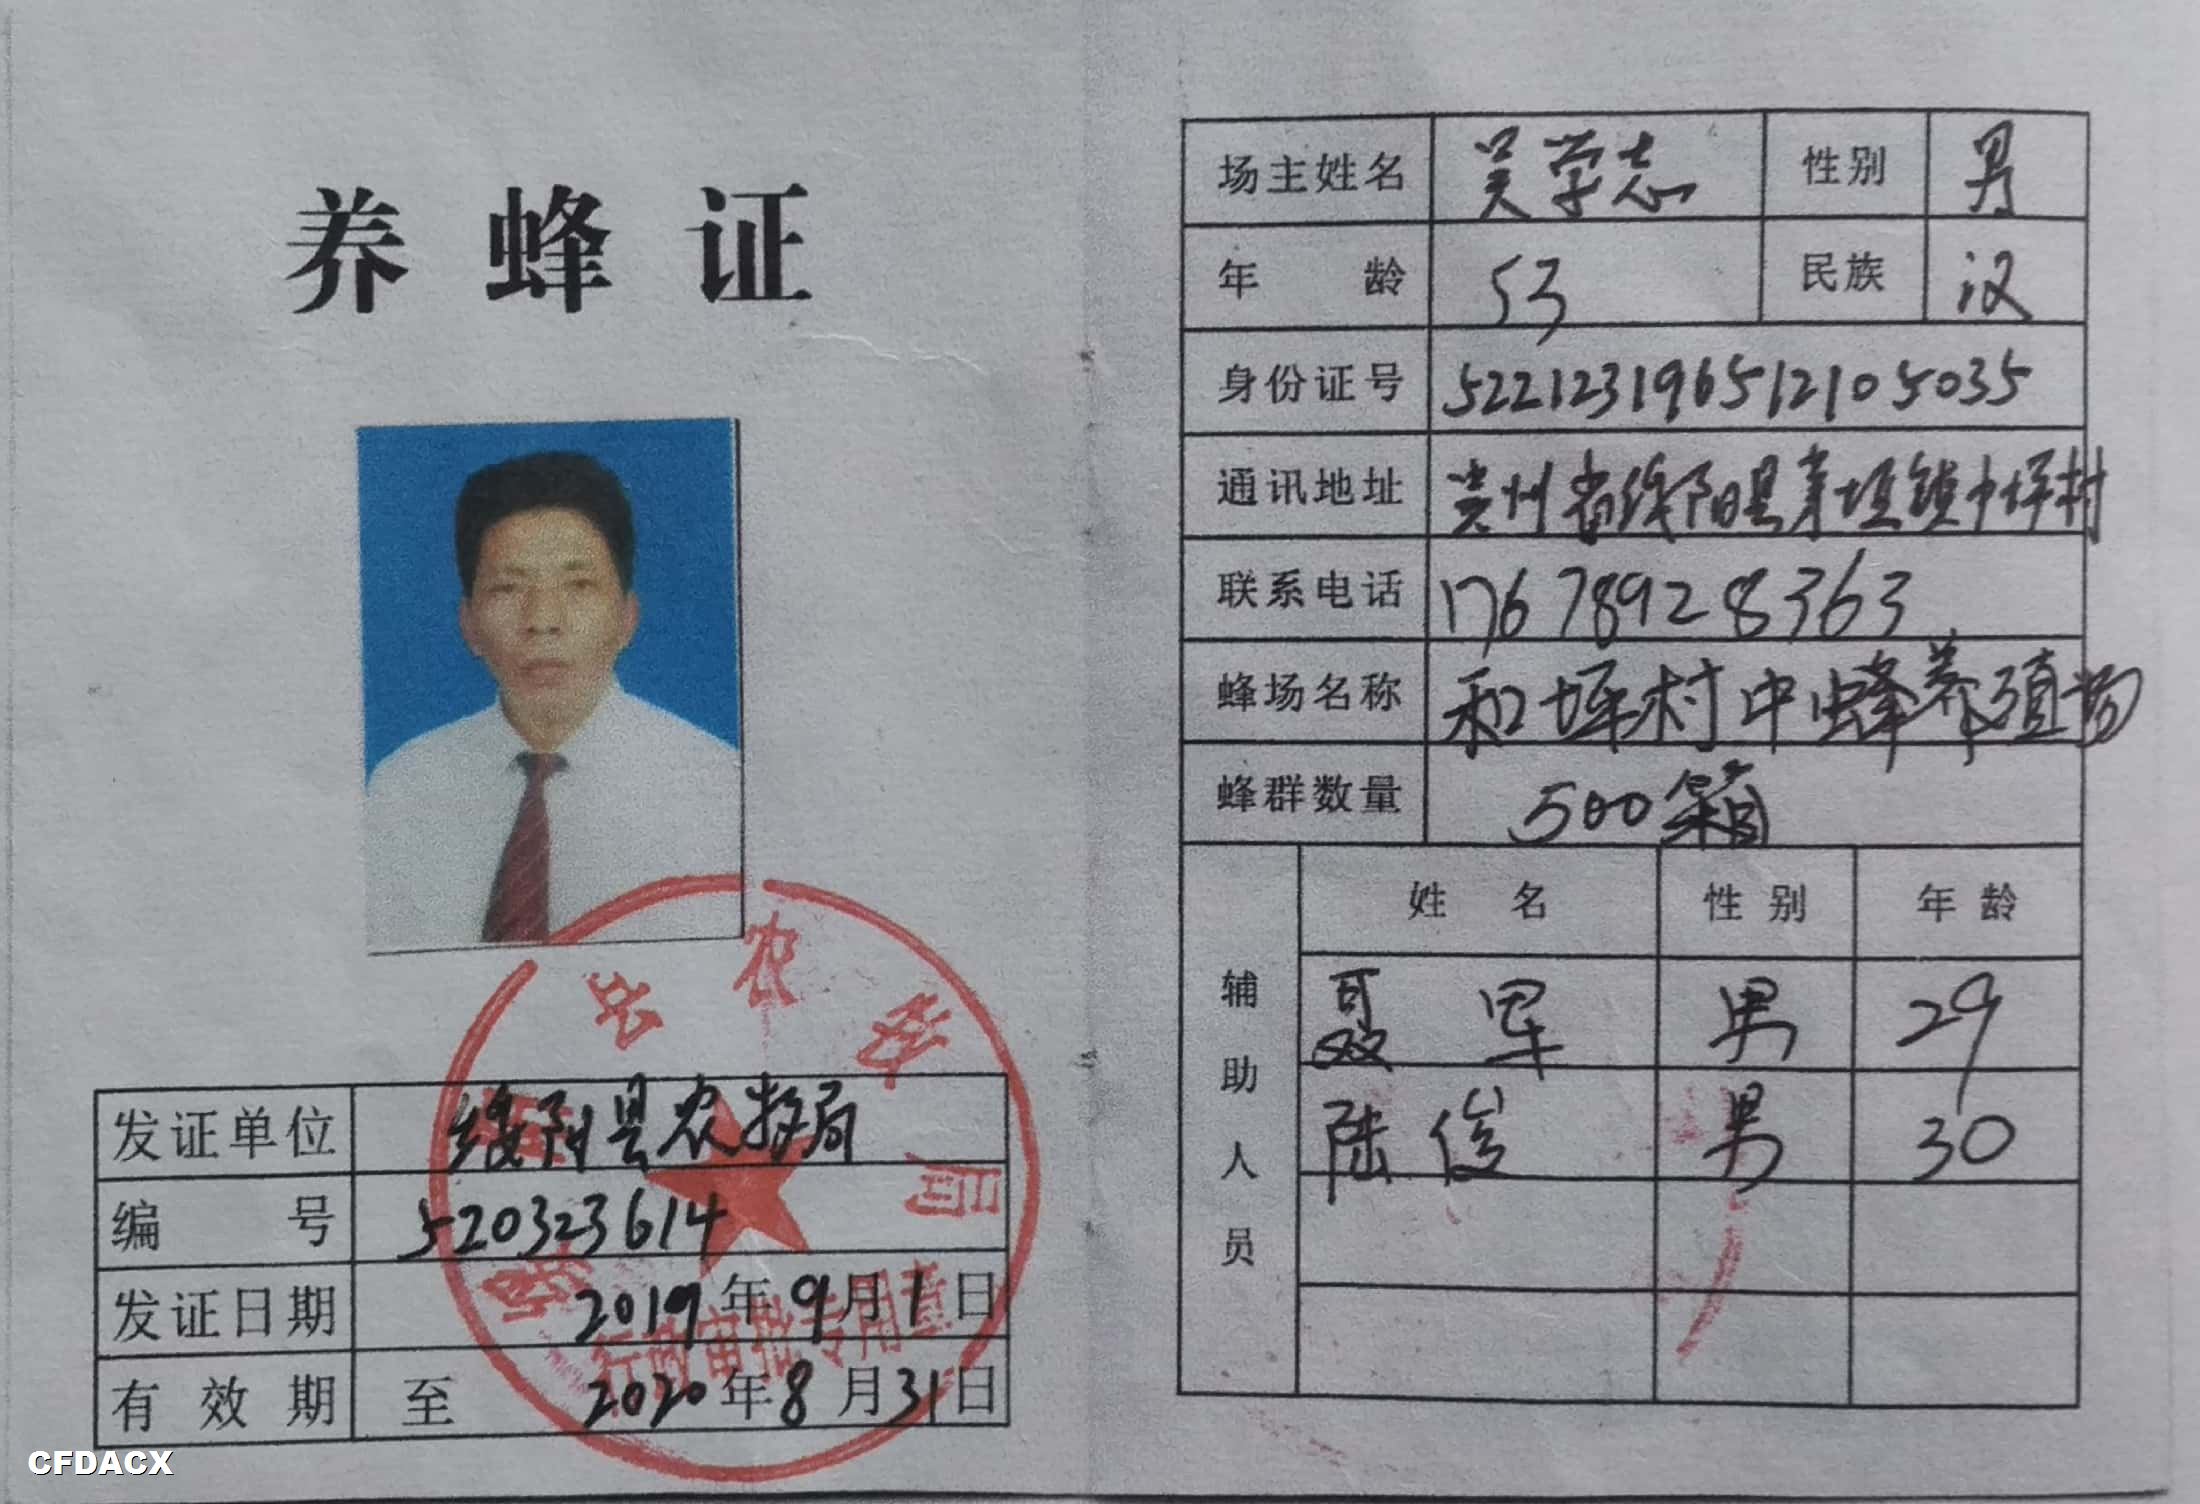 养蜂证
发证单位 绥阳县农牧局
编号 520323614
发证日期 2019年9月1日
有效期 至 2020年8月31日
行政审批专用章
CFDACX
场主姓名 吴学志 性别 男
年龄 53 民族 汉
身份证号 522123196512105035
通讯地址 贵州省绥阳县茅垭镇中坪村
联系电话 17678928363
蜂场名称 和坪村中蜂养殖场
蜂群数量 500箱
辅助人员
姓名 性别 年龄
聂军 男 29
陆俊 男 30